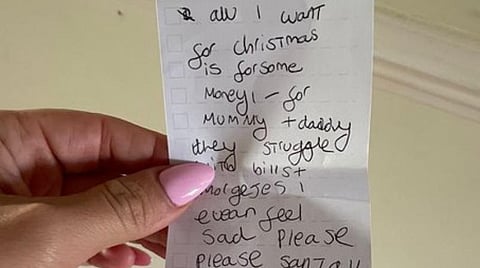 all I want
for christmas
is forsome
Money - for
MuMMy + daddy
they struggle
with bills +
morgeses I
evean feel
Sad Please
Please Santa